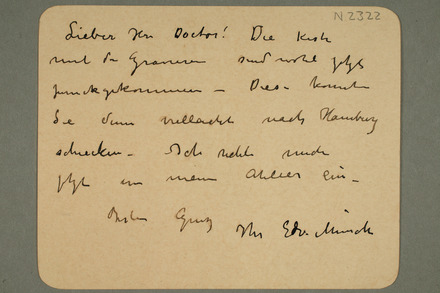 N 2322
Lieber Herr Doctor! Die Kiste
mit den Gravuren sind wohl jetzt
zurückgekommen – Diese konnten
Sie dann vielleicht nach Hamburg
schicken – Ich richte mich
jetzt in mein Atelier ein –
Besten Gruss
Ihr Edv. Munch